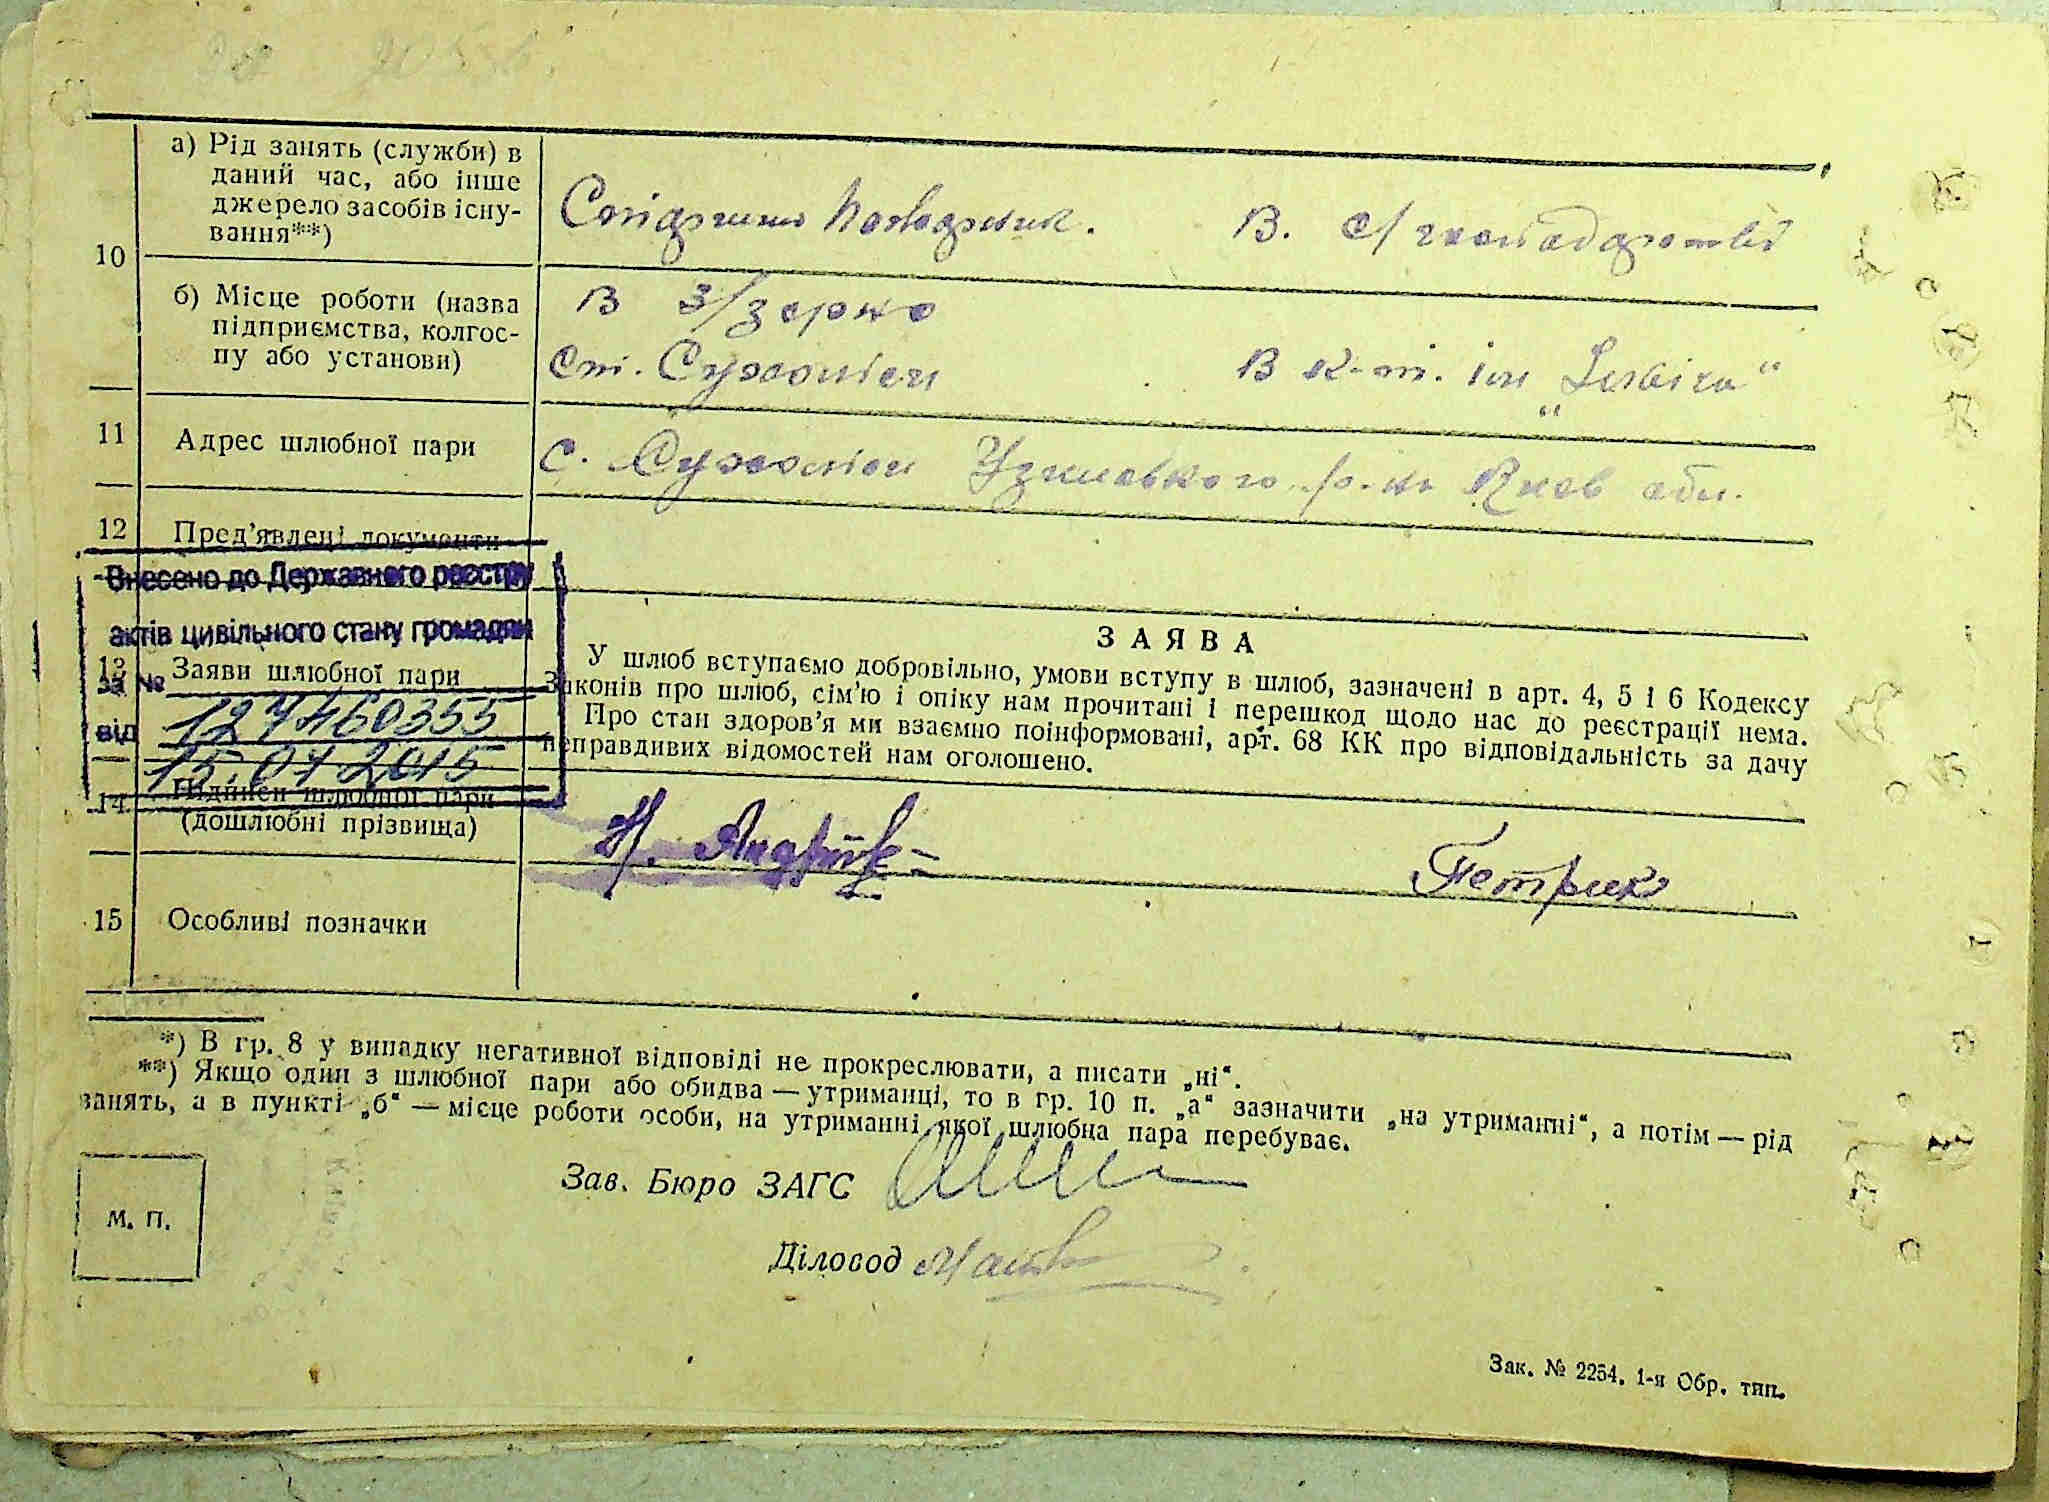 10
а) Рід занять (служби) в
даний час, або інше
джерело засобів існу-
вання**)
В. с/громадарстві
б) Місце роботи (назва
підприємства, колгос-
пу або установи)
В З/зерно
Ст. Сухоліси
В к-т. ім
11
Адрес шлюбної пари
с. Сухоліси р-ну Київ обл.
12
Пред'явлені документи
Внесено до Державного реєстру
актів цивільного стану громадян
за №
127460355
від
15.07.2015
13
Заяви шлюбної пари
ЗАЯВА
У шлюб вступаємо добровільно, умови вступу в шлюб, зазначені в арт. 4, 5 і 6 Кодексу
Законів про шлюб, сім'ю і опіку нам прочитані і перешкод щодо нас до реєстрації нема.
Про стан здоров'я ми взаємно поінформовані, арт. 68 КК про відповідальність за дачу
неправдивих відомостей нам оголошено.
14
Підписи шлюбної пари
(дошлюбні прізвища)
Петрик
15
Особливі позначки
*) В гр. 8 у випадку негативної відповіді не прокреслювати, а писати „ні“.
**) Якщо один з шлюбної пари або обидва — утриманці, то в гр. 10 п. „а“ зазначити „на утриманні“, а потім — рід
занять, а в пункті „б“ — місце роботи особи, на утриманні якої шлюбна пара перебуває.
Зав. Бюро ЗАГС
М. П.
Діловод
Зак. № 2254. 1-я Обр. тип.